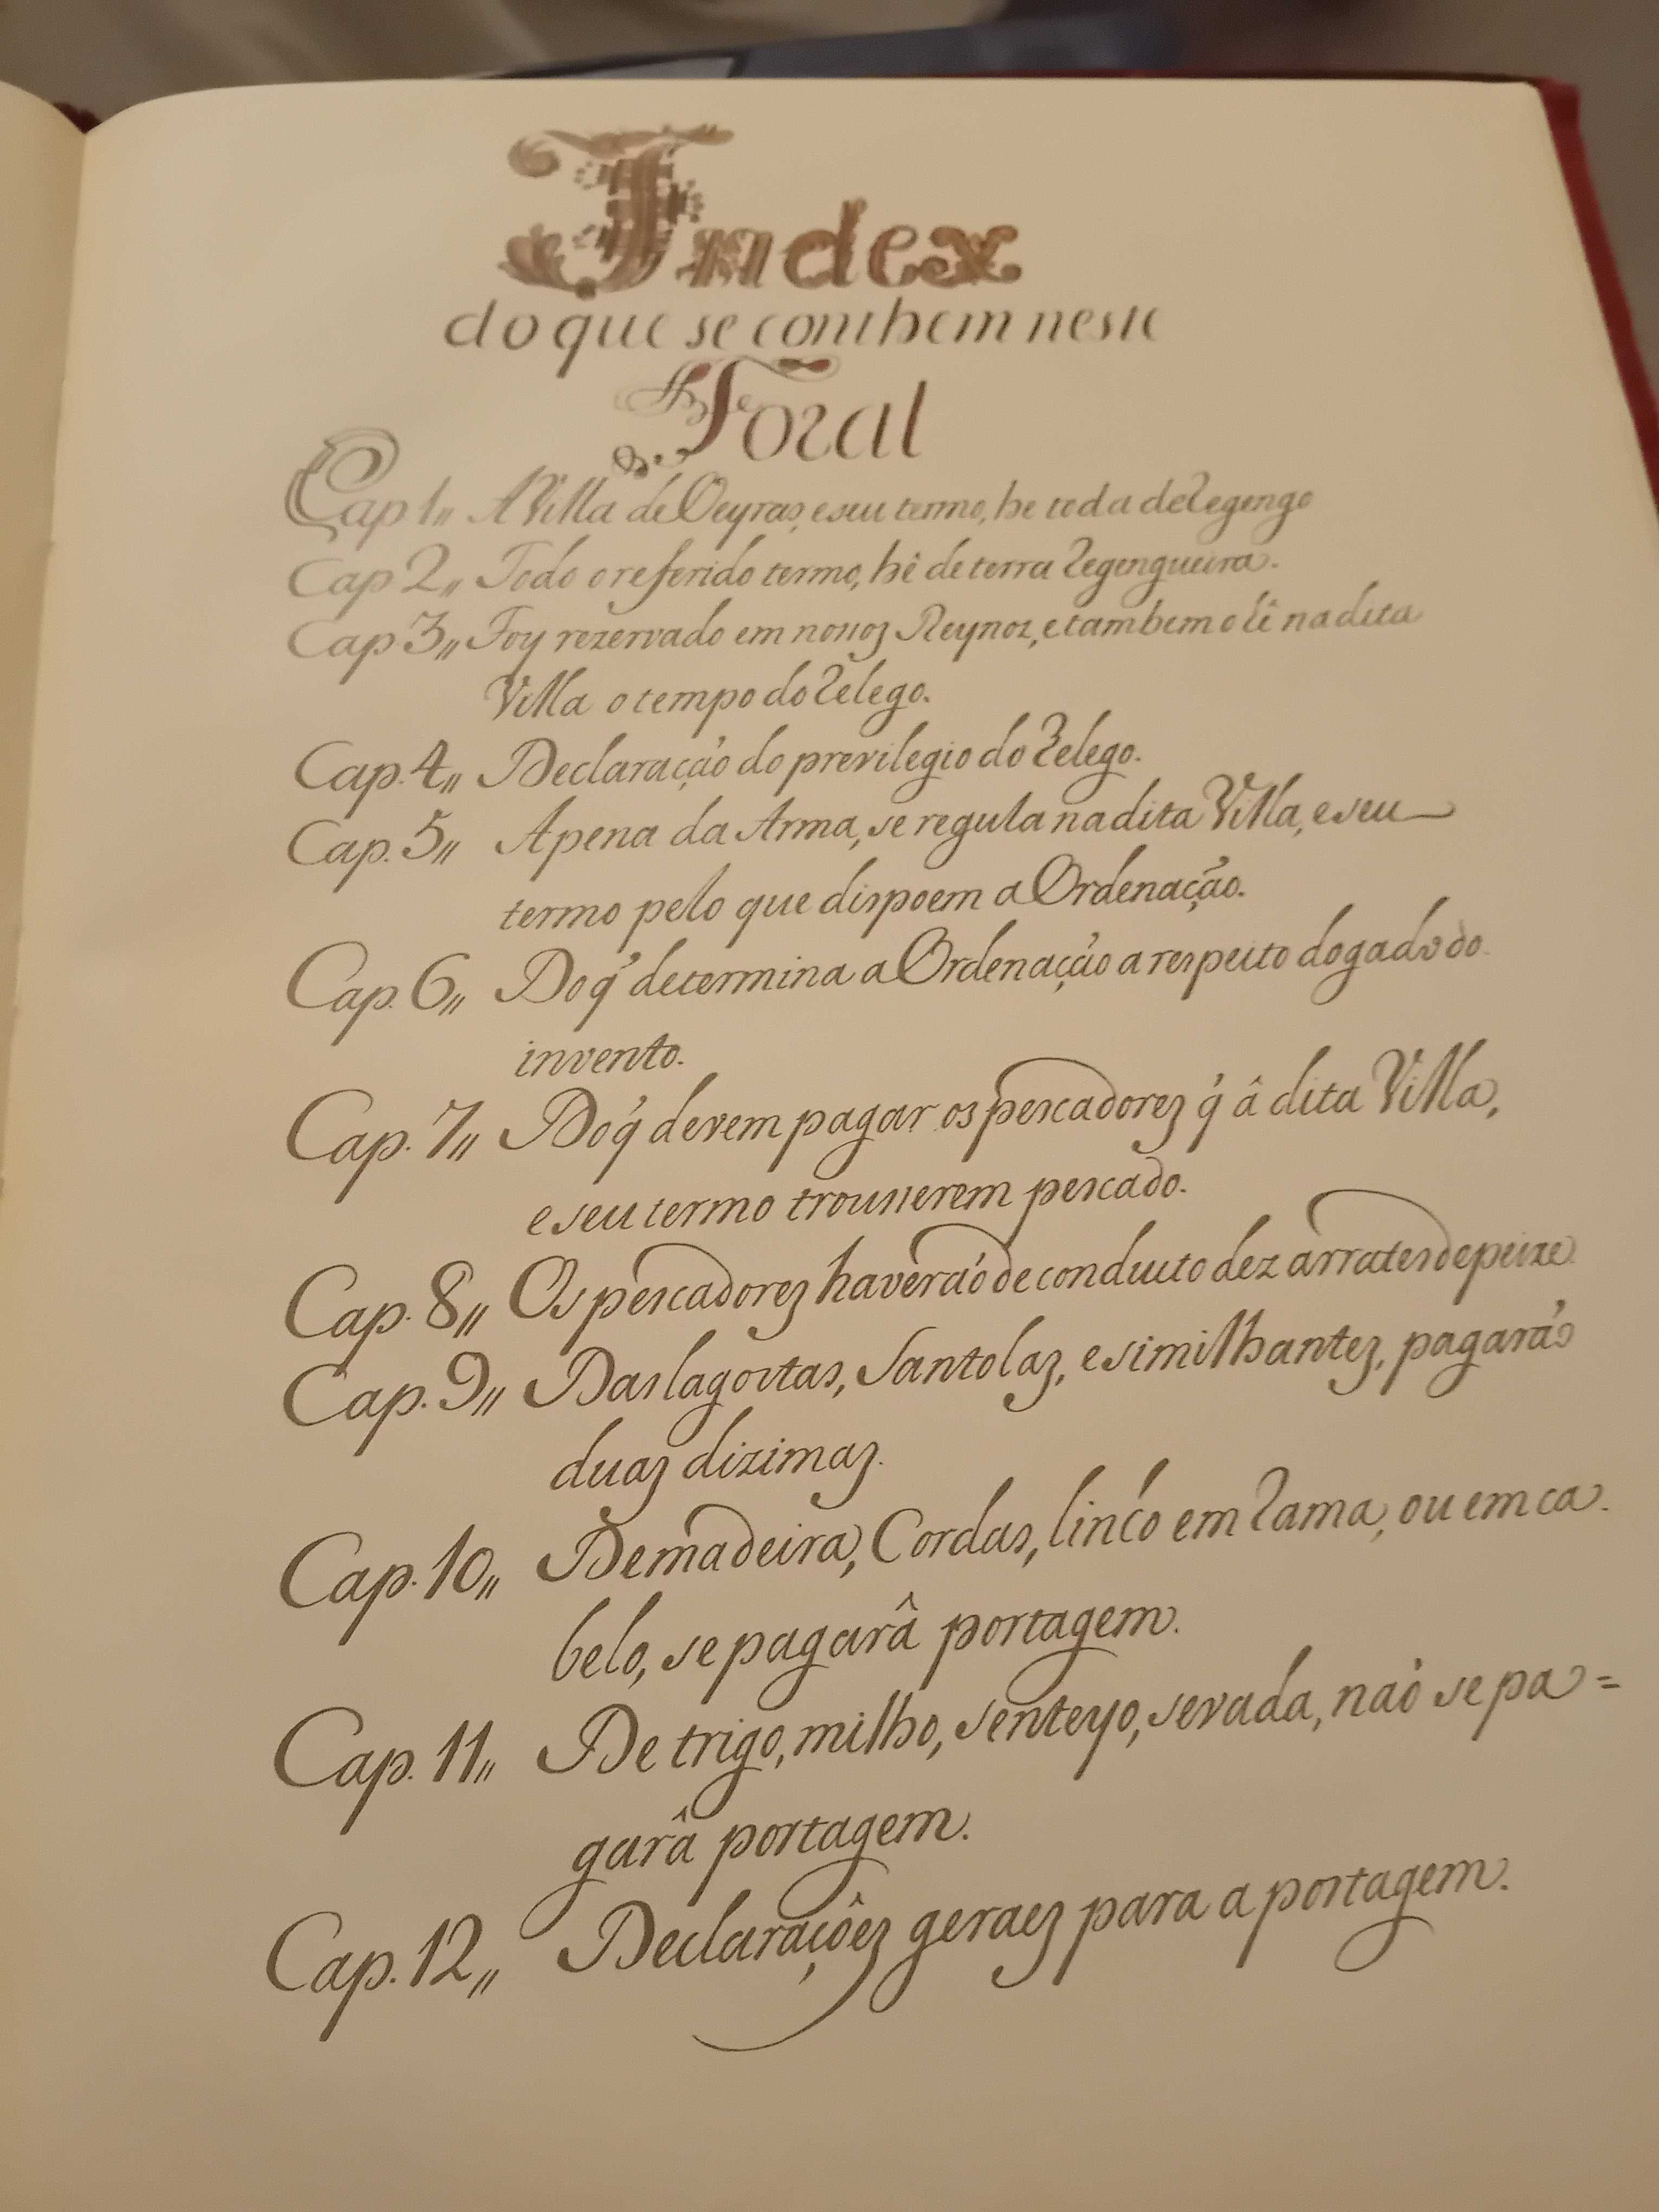 Index
do que se conthem neste
Foral
Cap 1,, A Villa de Oeyras, e seu termo, he toda de Regengo
Cap 2,, Todo o referido termo, hê de terra Regengueira.
Cap 3,, Foy rezervado em nossos Reynos, e tambem o hê na dita
Villa o tempo do Relego.
Cap. 4,, Declaração do previlegio do Relego.
Cap. 5,, A pena da Arma, se regula na dita Villa, e seu
termo pelo que dispoem a Ordenação.
Cap. 6,, Do q' determina a Ordenação a respeito do gado do
invento.
Cap. 7,, Do q' devem pagar os pescadores q' â dita Villa,
e seu termo trousserem pescado.
Cap. 8,, Os pescadores haverão de conduito dez arrates de peixe
Cap. 9,, Das lagostas, Santolas, e similhantes, pagarão
duas dizimas.
Cap. 10,, De madeira, Cordas, linho em Rama, ou em ca
belo, se pagarâ portagem.
Cap. 11,, De trigo, milho, senteyo, sevada, naõ se pa=
garâ portagem.
Cap. 12,, Declaraçôes geraes para a portagem.